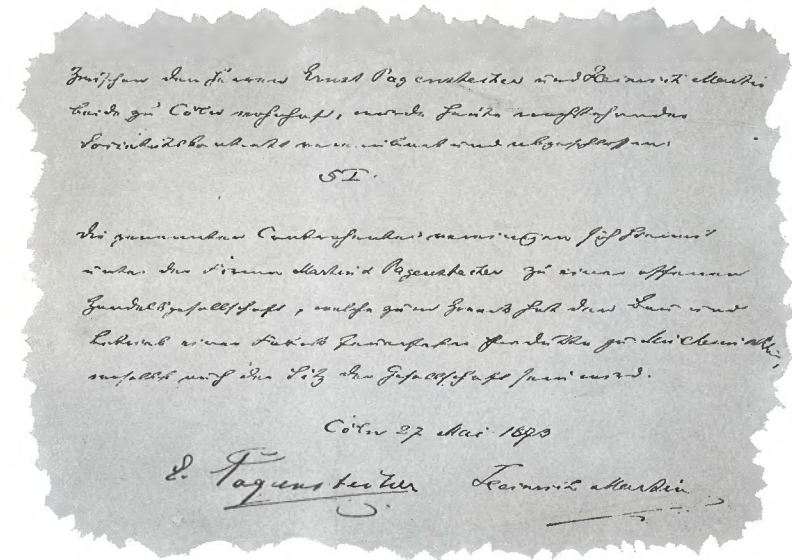 Zwischen den Herren Ernst Pagenstecher und Heinrich Martin
beide zu Cöln wohnhaft, wurde heute nachstehender
Societätskontrakt vereinbart und abgeschlossen:
§ I.
Die genannten Contrahenten vereinigen sich hiermit
unter der Firma Martin & Pagenstecher zu einer offenen
Handelsgesellschaft, welche zum Zweck hat den Bau und
Betrieb einer Fabrik feuerfester Produkte zu Mülheim a/Rhein,
woselbst auch der Sitz der Gesellschaft sein wird.
Cöln 27 Mai 1873
E. Pagenstecher Heinrich Martin